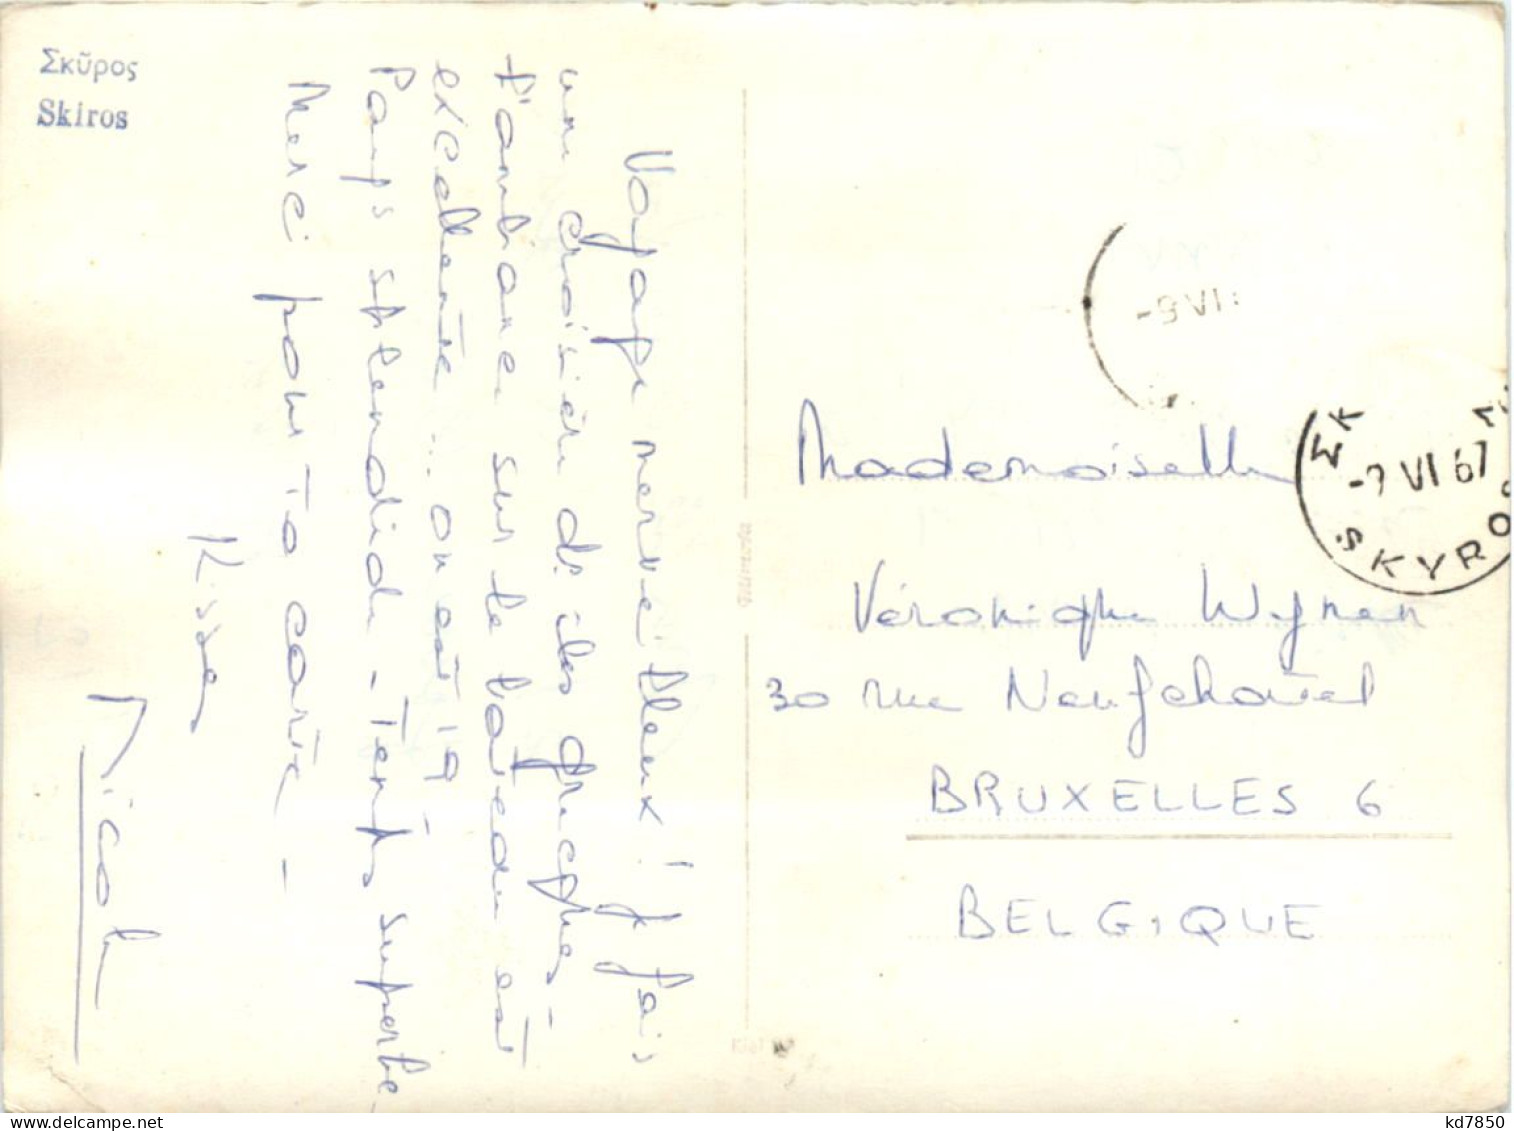 Σκῦρος
Skiros
Voyage merveilleux ! Je fais
une croisière des îles grecques -
l'ambiance sur le bateau est
excellente ... on est 19 -
Pays splendide - Temps superbe
Merci pour ta carte -
Kisses
Nicole
-9 VI
ΣΚ
-7 VI 67
SKYROS
Mademoiselle
Véronique Wynen
30 rue Neufchatel
BRUXELLES 6
BELGIQUE
kd7850